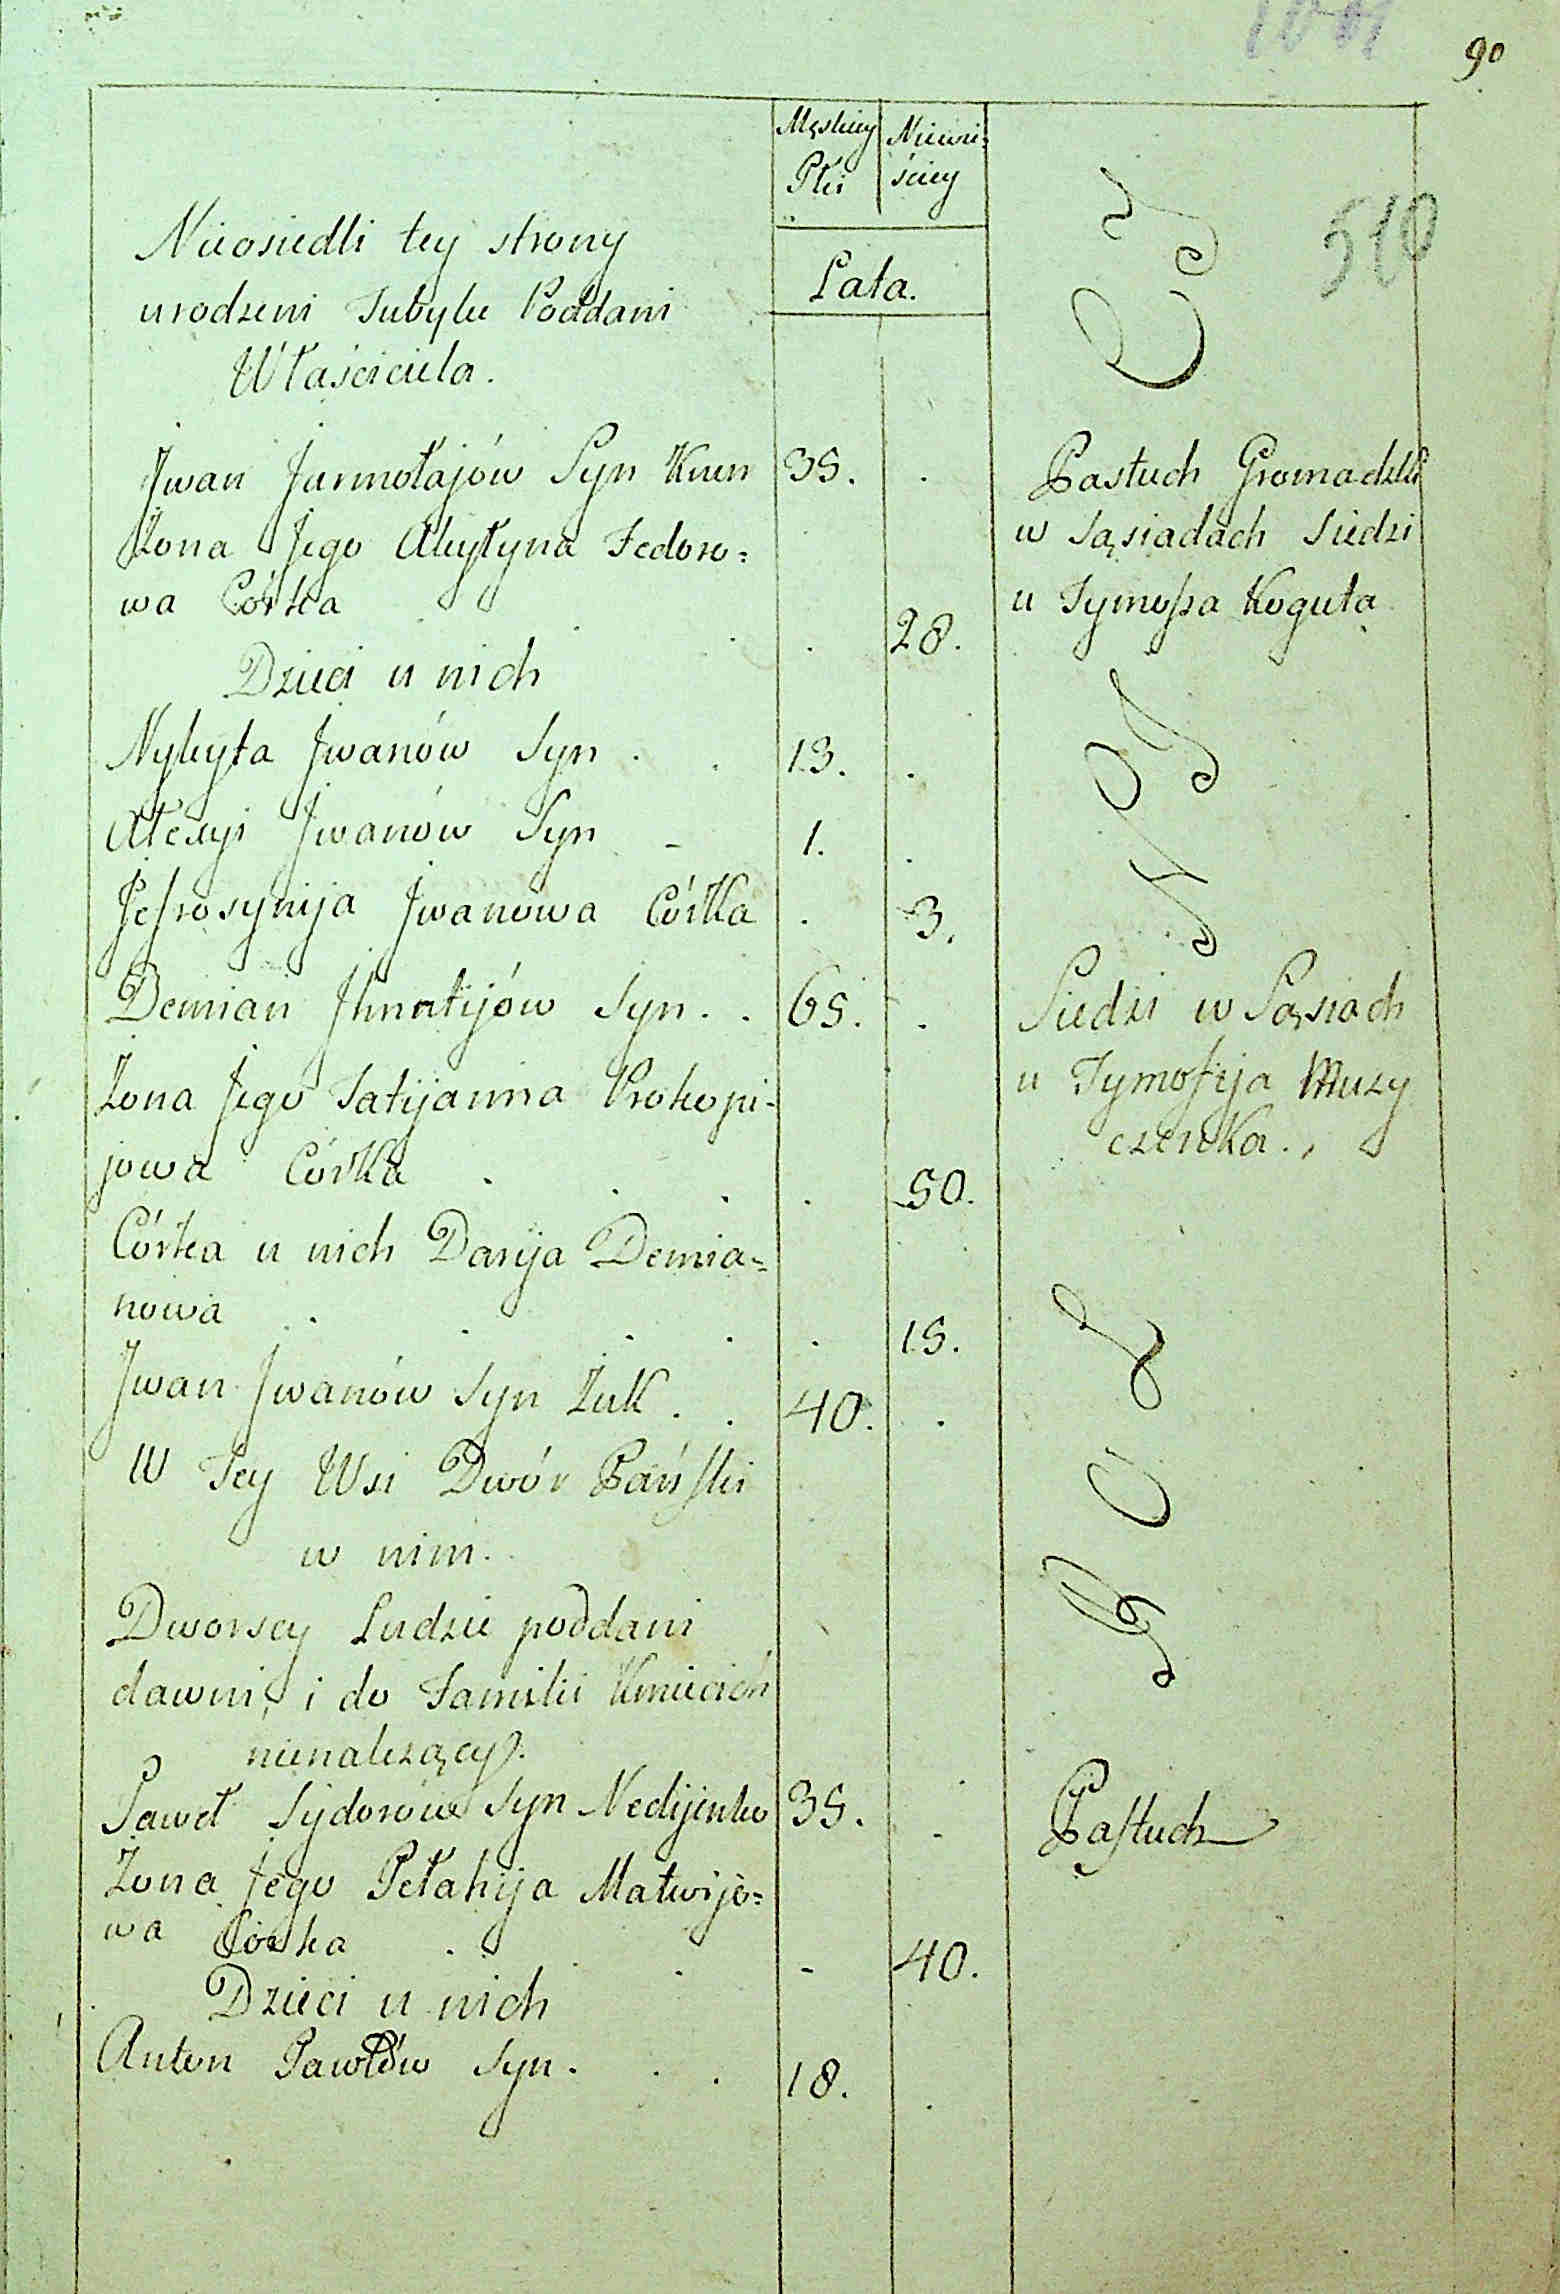 90
510
Męskiey Niewie-
Płci ściey
Lata.
Nieosiedli tey strony
urodzeni Tubylce Poddani
Właściciela.
Jwan Jarmołajów Syn Kurn 35.
Pastuch Gromadzki
Żona Jego Akylyna Fedoro=
w Sąsiadach Siedzi
wa Córka 28.
u Tymosza Koguta
Dzieci u nich
Nykyta Jwanów Syn 13.
Ałexyi Jwanów Syn 1.
Jefrosynija Jwanowa Córka 3.
Demian Jhnatijów Syn 65.
Siedzi w Sąsiach
Żona Jego Tatijanna Prokopi-
u Tymofija Muzy
jowa Córka 50.
czenka.
Córka u nich Daryja Demia=
nowa 15.
Jwan Jwanów Syn Żuk 40.
W Tey Wsi Dwór Pański
w nim.
Dworscy Ludzie poddani
dawni, i do Familii Kmiecich
nienależący.
Paweł Sydorów Syn Nedijenko 35.
Pastuch
Żona Jego Pełahija Matwijo=
wa Córka 40.
Dzieci u nich
Anton Pawłów Syn. 18.